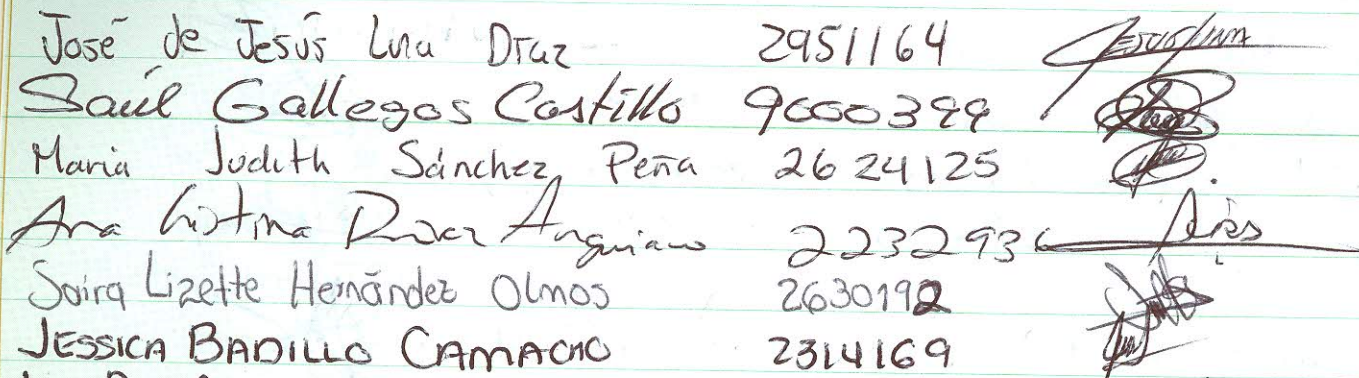 José de Jesús Luna Díaz 2951164 Jesus Luna
Saúl Gallegos Castillo 9000399
Maria Judith Sánchez Peña 2624125
Ana Cristina Anguiano 2232936
Saira Lizette Hernández Olmos 2630192
JESSICA BADILLO CAMACHO 2314169